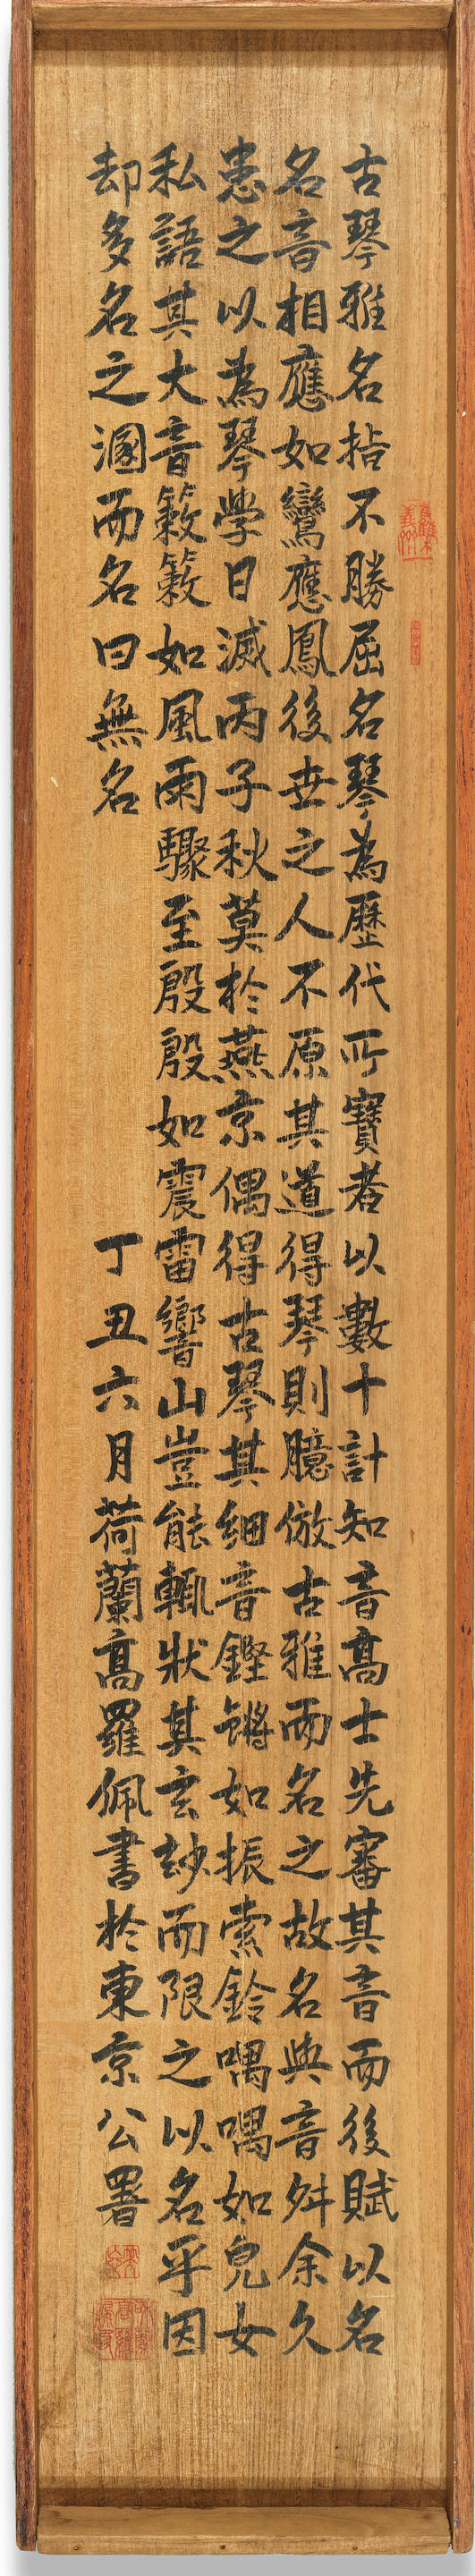 古琴雅名指不勝屈名琴為歷代所寶者以數十計知音高士先審其音而後賦以名
名音相應如鸞應鳳後世之人不原其道得琴則臆倣古雅而名之故名與音舛余久
患之以為琴學日滅丙子秋莫於燕京偶得古琴其細音鏗鏘如振索鈴喁喁如兒女
私語其大音簌簌如風雨驟至殷殷如震雷響山豈能輒狀其玄玅而限之以名乎因
却多名之溷而名曰無名
丁丑六月荷蘭高羅佩書於東京公署